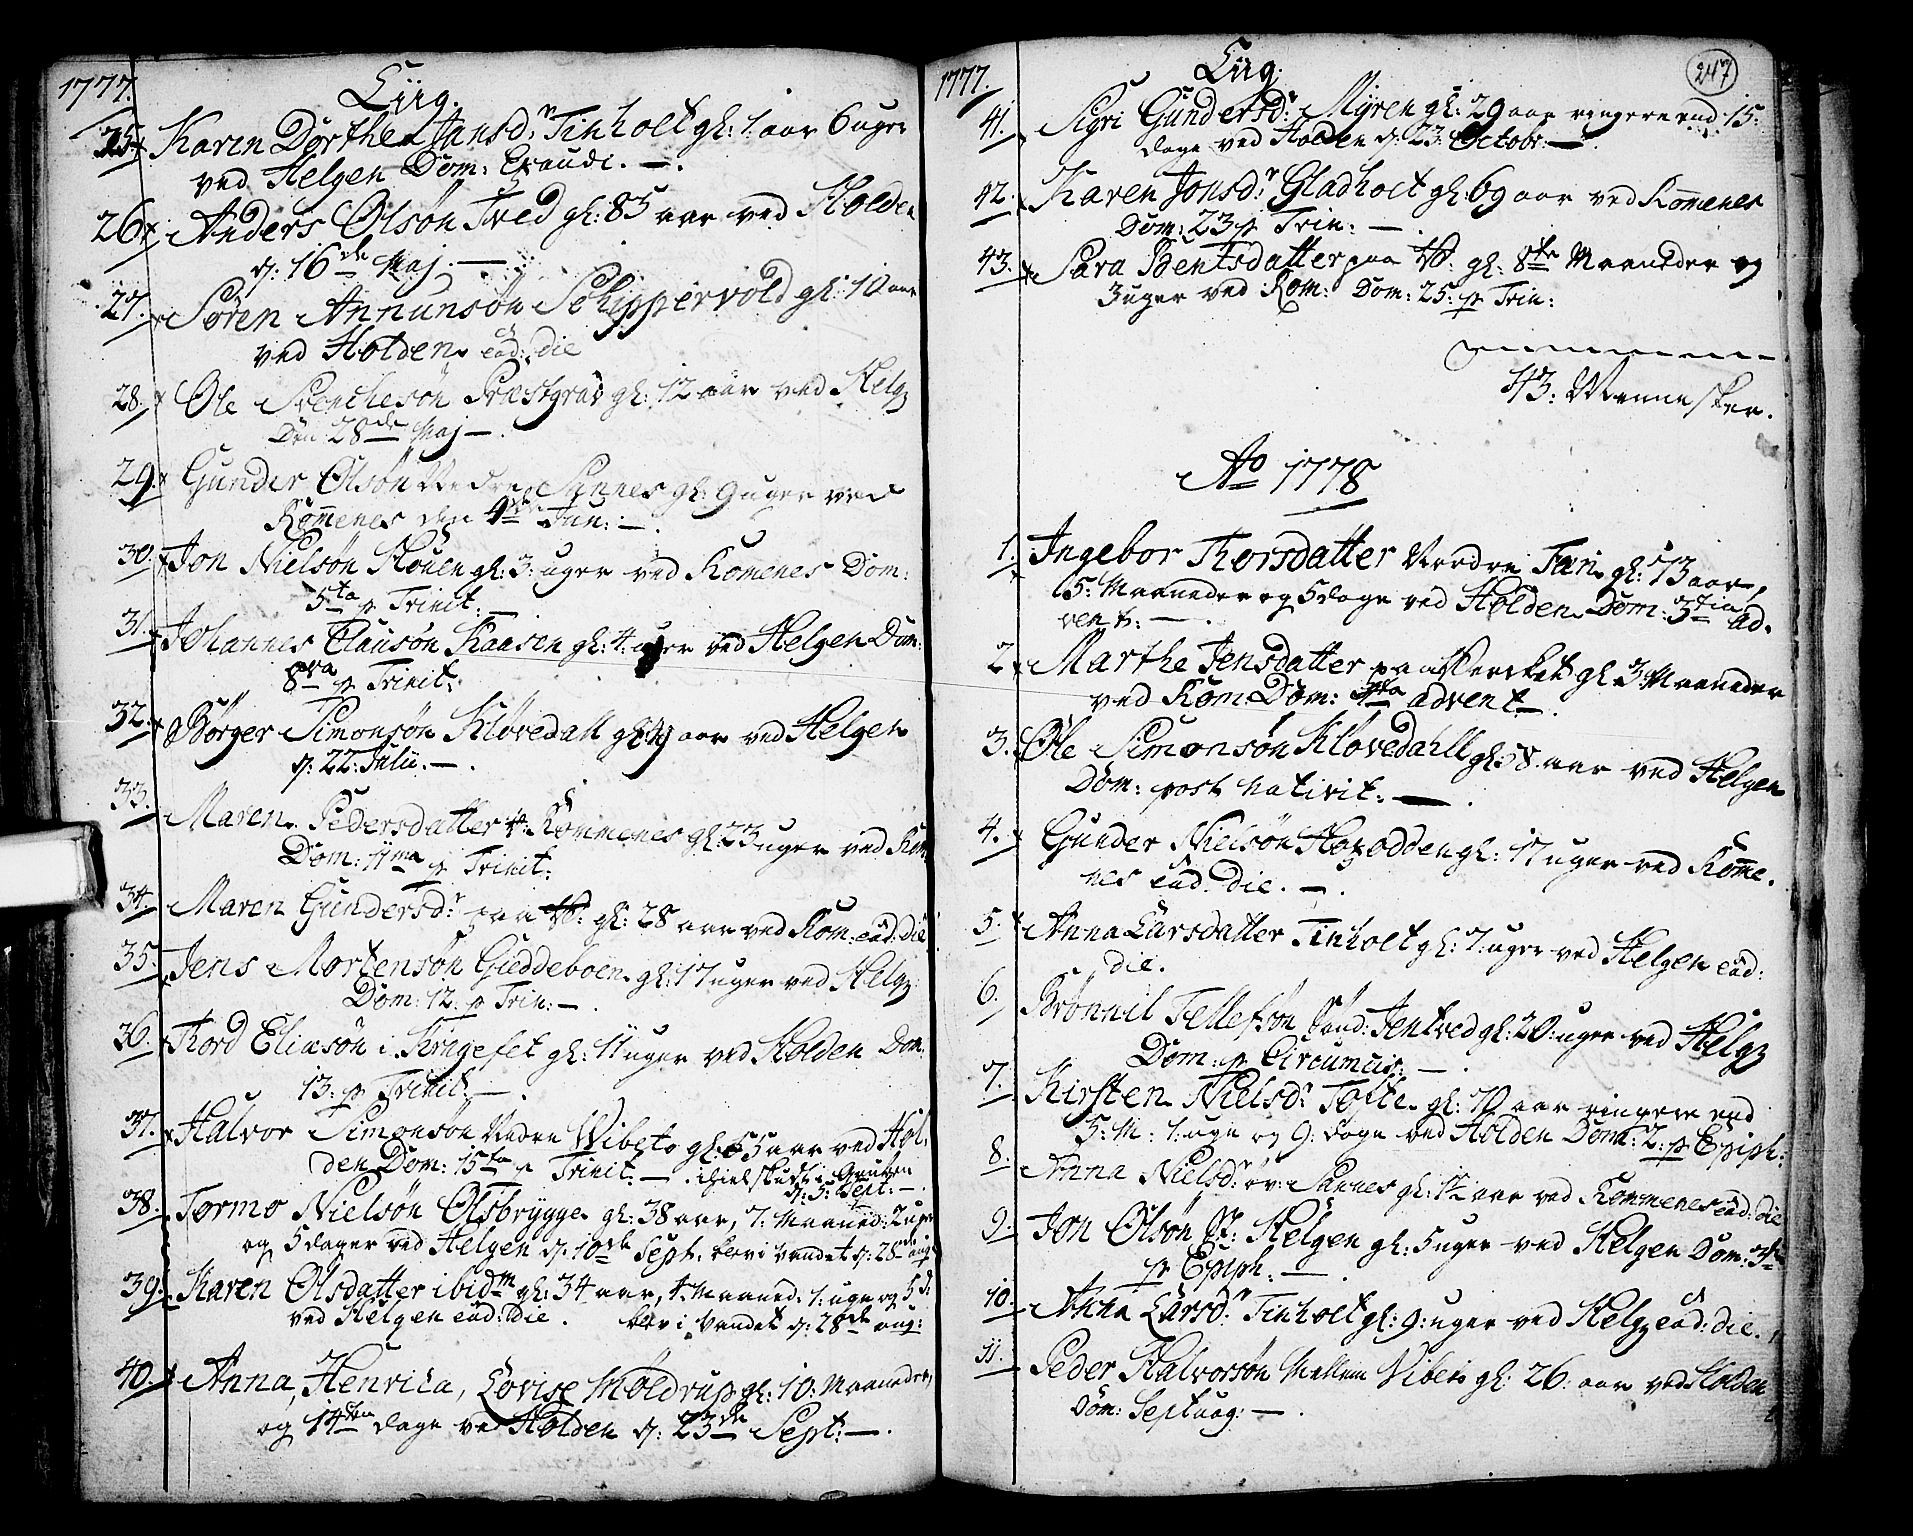 1777.
Liig.
25. Karen Dorthe Jansd.r Tinholt gl: 1. aar 6 uger
ved Helgen Dom: Exaudi. —.
26. Anders Olsøn Tved gl: 85 aar ved Holden
d: 16de Maj. —.
27. Søren Annunsøn Schippervold gl: 10 aar
ved Holden ead: die
28. Ole Svenchesøn Præstgrav gl: 12 aar ved Helg
Den 28de Maj —.
29. Gunder Olsøn Nedre Sannes gl: 9 uger ved
Romenes den Jun: —.
30. Jon Nielsøn Skouen gl: 3: uger ved Romenes Dom:
5ta p Trinit: —
31. Johannes Clausøn Kaasen gl: 4: uger ved Helgen Dom:
8va p Trinit:
32. Børger Simonsøn Kløvedall gl: aar ved Helgen
d: 22: Julii. —.
33. Maren Pedersdatter V: Rommenes gl: 23 uger ved Rom
Dom: 11ma p Trinit:
34. Maren Gundersd.r paa V: gl: 28 aar ved Rom: ead: die
35. Jens Mortensøn Gieddeboen gl: 17 uger ved Helg:
Dom: 12: p Trin: —.
36. Tord Eliæsøn i Kirigefet gl: 11 uger ved Holden Dom.
13: p Trinit: —.
37. Halvor Simonsøn Nedre Wibeto gl: 55 aar ved Hol-
den Dom: 15ta p Trinit: —. ihielskudt i Gruben
d: 5: Sept: —.
38. Tormo Nielsøn Olsbrygge gl: 38 aar, 7: Maaned: 2 uger
og 5 dager ved Helgen d: 10de Sept. blev i Vandet d: 28de aug:
39. Karen Olsdatter ibidm gl: 34 aar, 4. Maaned: 1: uge og 5 d:
ved Helgen ead: die. blev i Vandet d: 28de aug:
40. Anna, Henrica, Lovise Møldrup gl: 10: Maaneder,
og 14ten dage ved Holden d: 23de Sept: —.
1777.
Liig.
247
41. Sigri Gundersd.r Myren gl: 29 aar ringere end 15:
dage ved Holden d: 23: Octobr: —
42. Karen Jonsd.r Gladholt gl: 69 aar ved Romenes
Dom: 23 p Trin: —.
43. Sara Bentsdatter paa V: gl: 8te Maaneder og
3 uger ved Rom: Dom: 25: p Trin:
43: Mennesker.
Ao 1778
1. Ingebor Torsdatter Nordre Fæn gl: 73 aar,
5: Maaneder og 5 dage ved Holden Dom: 3tia ad-
vent: —.
2. Marthe Jensdatter paa Verchet gl: 3: Maaneder
ved Rom: Dom: advent —.
3. Ole Simonsøn Kløvedahll gl: 58. aar ved Helgen
Dom: post nativit: —.
4. Gunder Nielsøn Hogodden gl: 17 uger ved Rome-
nes ead: die. —.
5. Anna Larsdatter Tinholt gl: 7: uger ved Helgen ead:
die.
6. Brønnil Tellefsøn Jentved gl: 20: uger ved Helg
Dom: p Circumcis: —.
7. Kirsten Nielsd.r Tofte gl: 70 aar ringere end
5: M: 1: uge og 9: dage ved Holden Dom: 2: p Epiph:
8. Anna Nielsd.r øv: Sannes gl: aar ved Rommenes ead: die
9. Jon Olsøn St: Helgen gl: 5 uger ved Helgen Dom: 3tia
p Epiph: —.
10. Anna Larsd.r Tinholt gl: 9: uger ved Helg ead: die.
11. Peder Halvorsøn Mellem Vibeto gl: 26: aar ved Holden
Dom: Septuag: —.